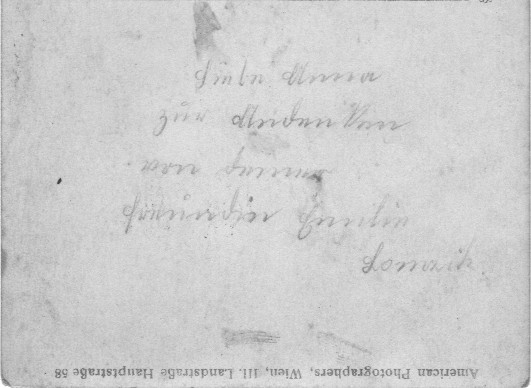 Liebe Anna
zur Andenken
von deiner
Freundin Emilie
American Photographers, Wien, III. Landstraße Hauptstraße 58